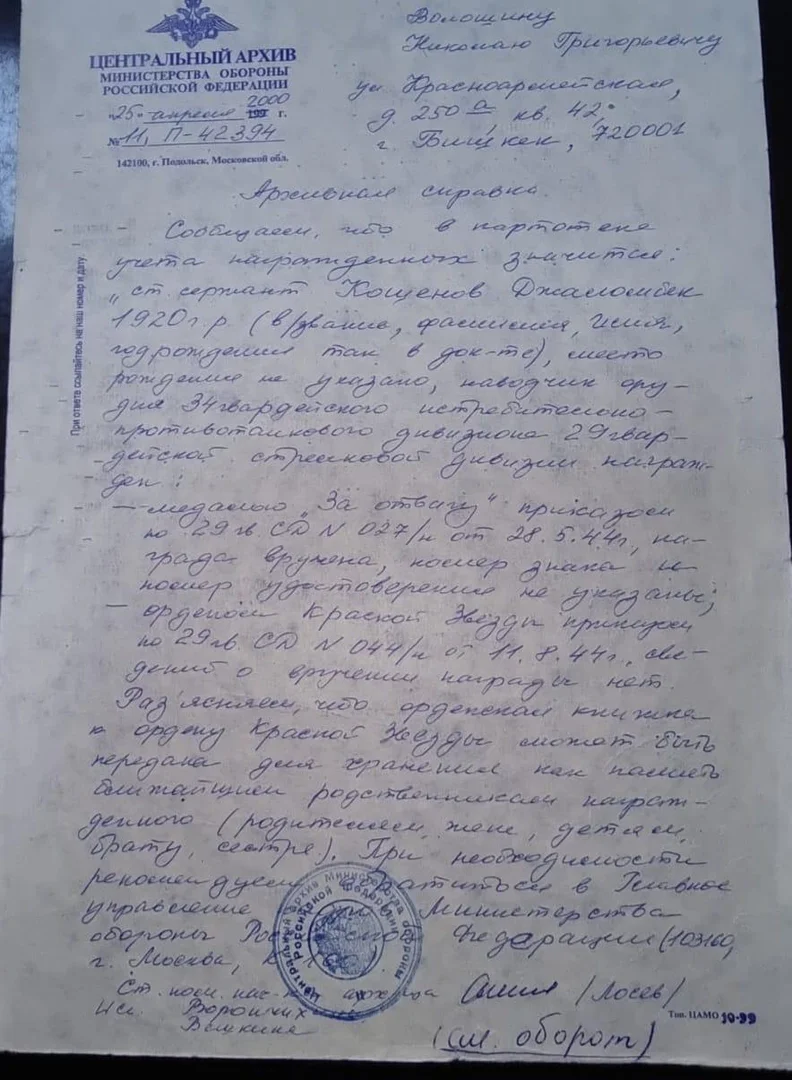 ЦЕНТРАЛЬНЫЙ АРХИВ
МИНИСТЕРСТВА ОБОРОНЫ
РОССИЙСКОЙ ФЕДЕРАЦИИ
"25" апреля 2000 199 г.
№ 11, П-42394
142100, г. Подольск, Московской обл.
Волошину
Николаю Григорьевичу
ул Красноармейская,
д. 250 а, кв. 42
г. Бишкек, 720001
При ответе ссылайтесь на наш номер и дату.
Архивная справка.
Сообщаем, что в картотеке
учета награжденных значится:
"ст. сержант Кощенов Джаломбек
1920 г.р. (в/звание, фамилия, имя,
год рождения так в док-те), место
рождения не указано, наводчик ору-
дия 34 гвардейского истребительно-
противотанкового дивизиона 29 гвар-
дейской стрелковой дивизии награж-
ден:
— медалью "За отвагу" приказом
по 29 гв. СД N 027/н от 28.5.44г., на-
града вручена, номер знака и
номер удостоверения не указаны;
— орденом Красной Звезды приказом
по 29 гв. СД N 044/н от 11.8.44г., све-
дений о вручении награды нет.
Раз'ясняем, что орденская книжка
к ордену Красной Звезды может быть
передана для хранения как память
ближайшим родственникам награж-
денного (родителям, жене, детям,
брату, сестре). При необходимости
рекомендуем обратиться в Главное
управление Министерства
обороны Федерации (103160,
г. Москва, К-160)
Ст. пом. нач. архива /Лосев/
Исп. Ворончих
Вешкина
Центральный архив Министерства обороны
Российской Федерации
Тип. ЦАМО 10-99
(см. оборот)